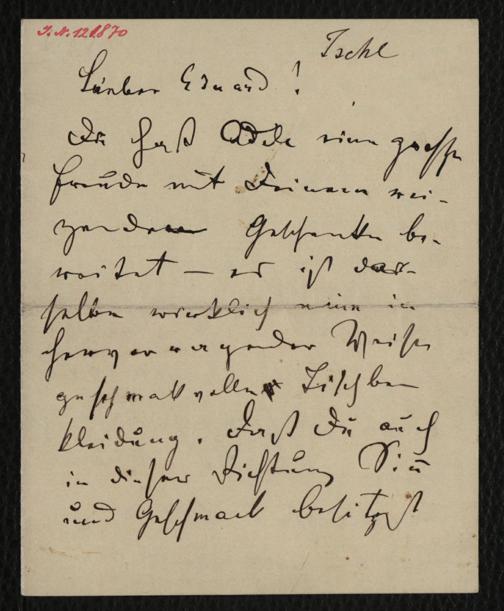 I.N. 121870
Ischl
Lieber Eduard!
Du hast Adele eine grosse
Freude mit Deinem rei-
zenden Geschenke be-
reitet — es ist das-
selbe wirklich eine in
hervorragender Weise
geschmakvolle Tischbe
kleidung. Dass Du auch
in dieser Richtung Sinn
und Geschmack besitzest